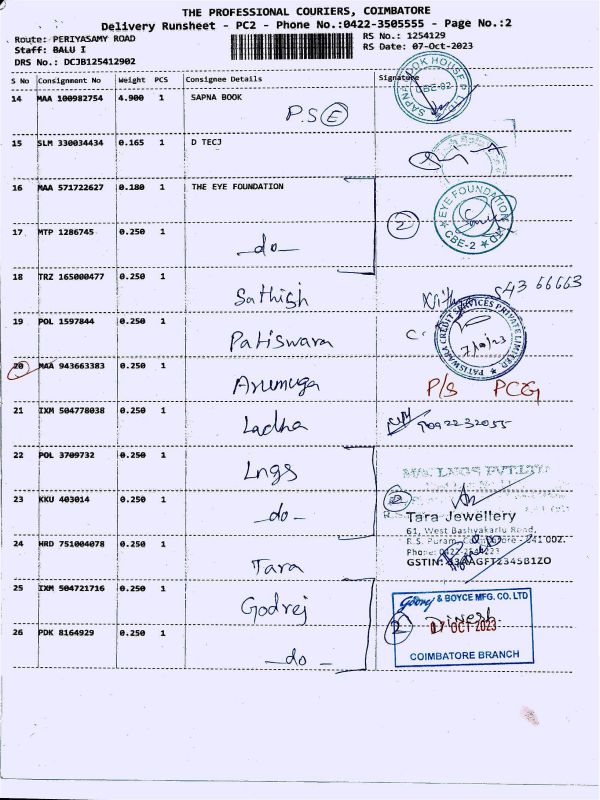 THE PROFESSIONAL COURIERS, COIMBATORE
Delivery Runsheet - PC2 - Phone No.:0422-3505555 - Page No.:2
Route: PERIYASAMY ROAD
Staff: BALU I
DRS No.: DCJB125412902
RS No.: 1254129
RS Date: 07-Oct-2023
S No Consignment No Weight PCS Consignee Details Signature
14 MAA 100982754 4.900 1 SAPNA BOOK
P.S E
SAPNA BOOK HOUSE P LTD
CBE-02
15 SLM 330034434 0.165 1 D TECJ
16 MAA 571722627 0.180 1 THE EYE FOUNDATION
2
EYE FOUNDATION LTD
CBE-2
17 MTP 1286745 0.250 1 -do-
18 TRZ 165000477 0.250 1 Sathish
543 66663
19 POL 1597844 0.250 1 Patiswara
C.
PATISWARA CREDIT SERVICES PRIVATE LIMITED
7/10/23
20 MAA 943663383 0.250 1 Arumuga P/S PCG
21 IXM 504778038 0.250 1 Ladha 9092232055
22 POL 3709732 0.250 1 Lngs
LNGS PVT.LTD
23 KKU 403014 0.250 1 -do-
2
Tara Jewellery
61, West Bashyakarlu Road,
R.S. Puram, Coimbatore - 641 002.
24 HRD 751004078 0.250 1 Tara
Phone: 0422
GSTIN:
25 IXM 504721716 0.250 1 Godrej
Godrej & BOYCE MFG. CO. LTD
2 Dinesh
07 OCT 2023
26 PDK 8164929 0.250 1 -do-
COIMBATORE BRANCH